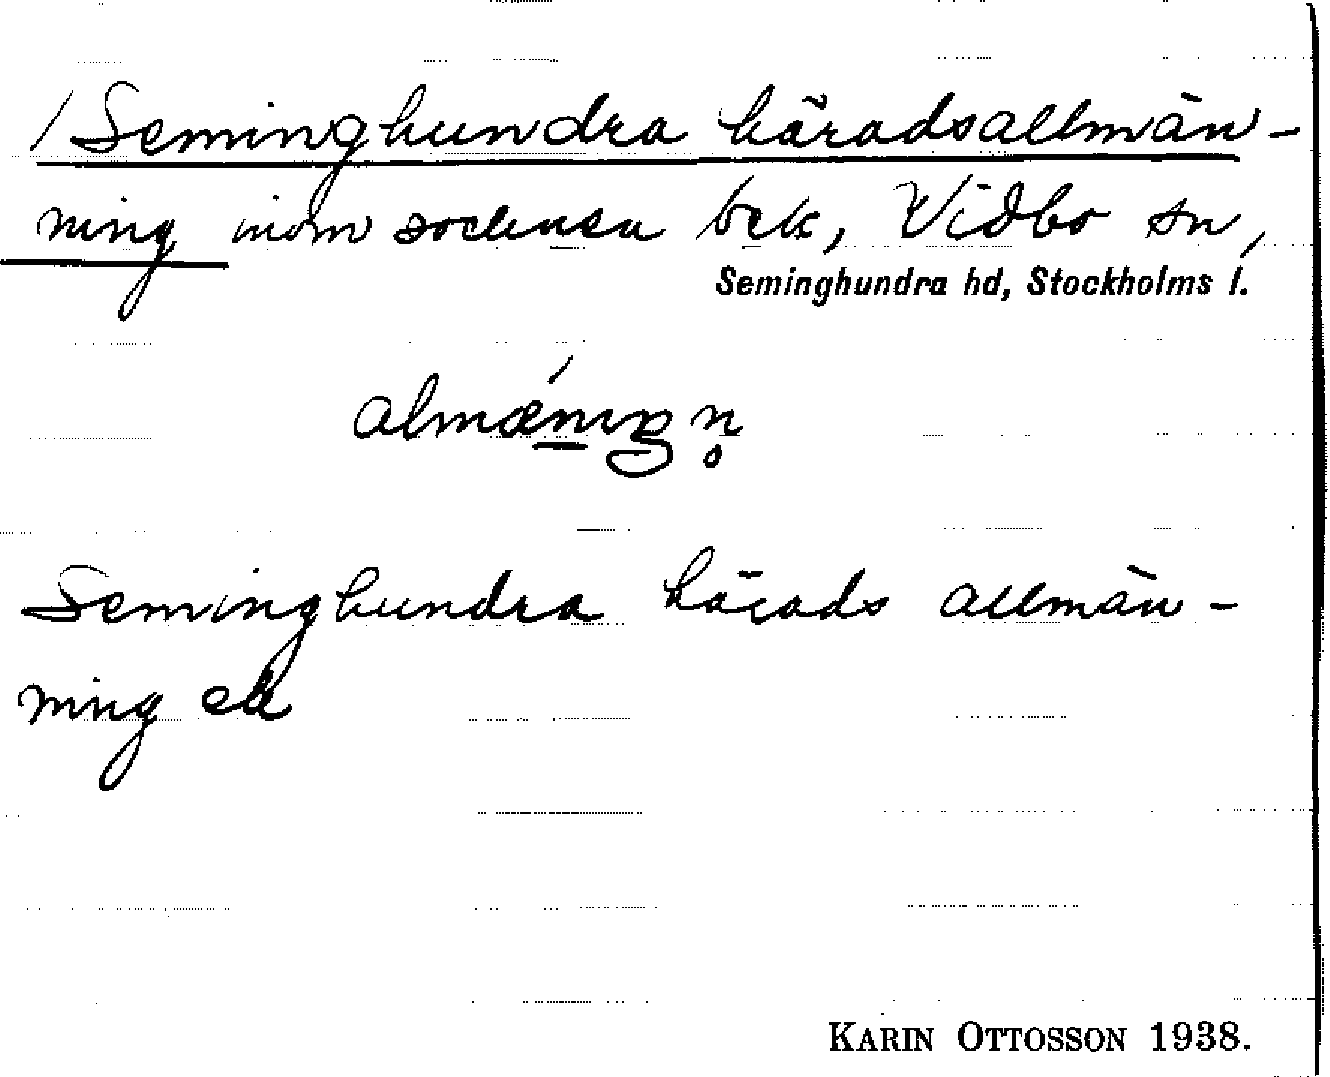 / Seminghundra häradsallmän-
ning inom socknen bek, Vidbo sn,
Seminghundra hd, Stockholms l.
almǽniŋn̥
Seminghundra härads allmän-
ning ek
KARIN OTTOSSON 1938.